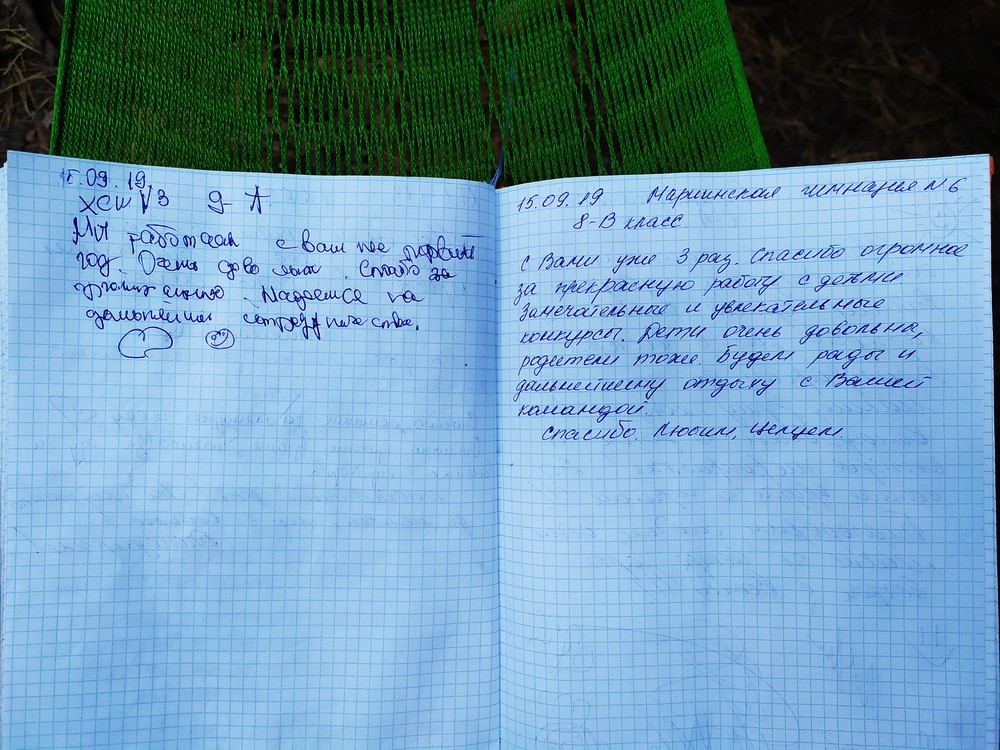 15.09.19
ХСШ №3 9-А
Мы работаем с вами не первый
год. Очень довольны. Спасибо за
организацию. Надеемся на
дальнейшее сотрудничество.
15.09.19 Мариинская гимназия №6
8-В класс
С Вами уже 3 раз. Спасибо огромное
за прекрасную работу с детьми.
Замечательные и увлекательные
конкурсы. Дети очень довольны,
родители тоже. Будем рады и
дальнейшему отдыху с Вашей
командой.
Спасибо. Любим, целуем.